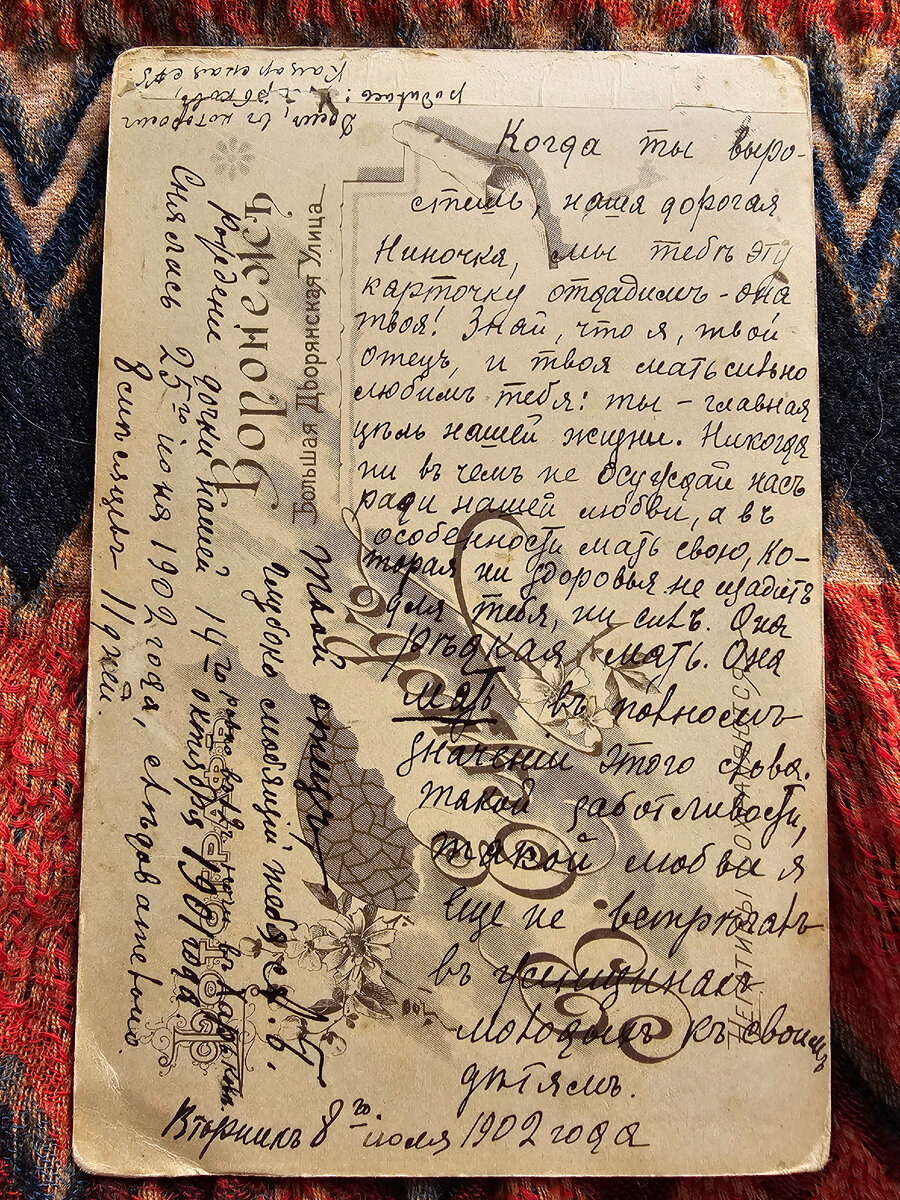 Когда ты выро-
стешь, наша дорогая
Ниночка, мы тебѣ эту
карточку отдадимъ - она
твоя! Знай, что я, твой
отецъ, и твоя мать сильно
любимъ тебя: ты - главная
цѣль нашей жизни. Никогда
ни въ чемъ не осуждай насъ
ради нашей любви, а въ
особенности мать свою, ко-
торая ни здоровья не щадитъ
для тебя, ни силъ. Она
рѣдкая мать. Она
мать въ полномъ
значеніи этого слова.
Такой заботливости,
такой любви я
еще не встрѣчалъ
въ женщинахъ
молодыхъ къ своимъ
дѣтямъ.
Твой отецъ,
глубоко любящій тебя
Вторникъ 8го іюля 1902 года
Снялась 25го іюня 1902 года, слѣдовательно
8 мѣсяцевъ 11 дней.
рожденіе дочки нашей 14го октября 1901 года
ровно въ ночи въ Харьковѣ.
Домъ, въ которомъ
родилась:
Воронежъ
Большая Дворянская Улица
ФОТОГРАФІЯ
НЕГАТИВЫ СОХРАНЯЮТСЯ